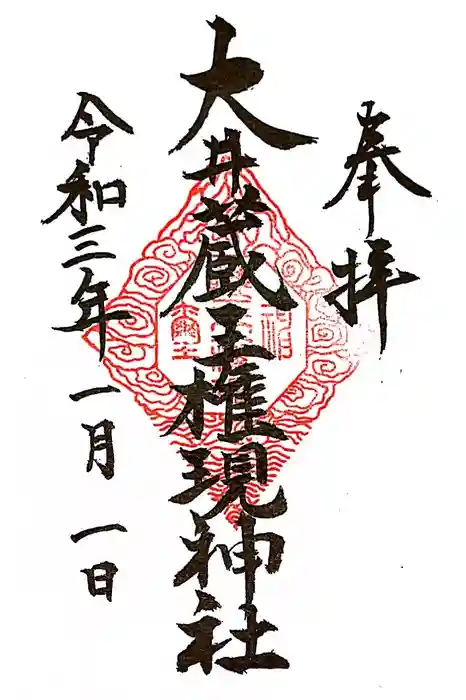 奉拝
大井蔵王権現神社
令和三年一月一日